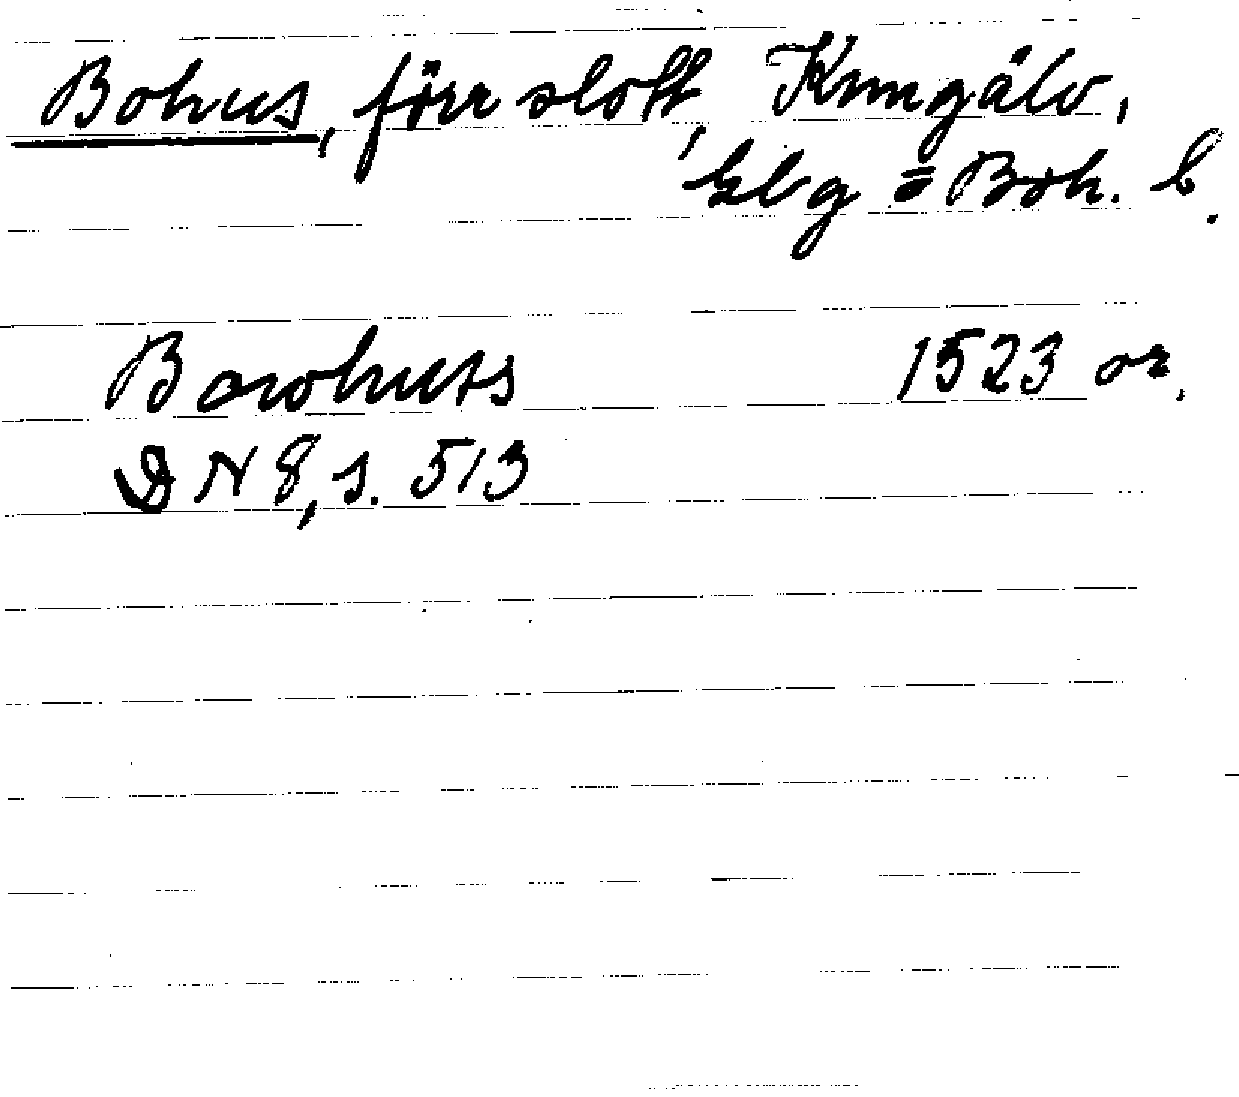 Bohus, förr slott, Kungälv,
Gbg = Boh. l.
Barohuss 1523 or.
DN 8, s. 513